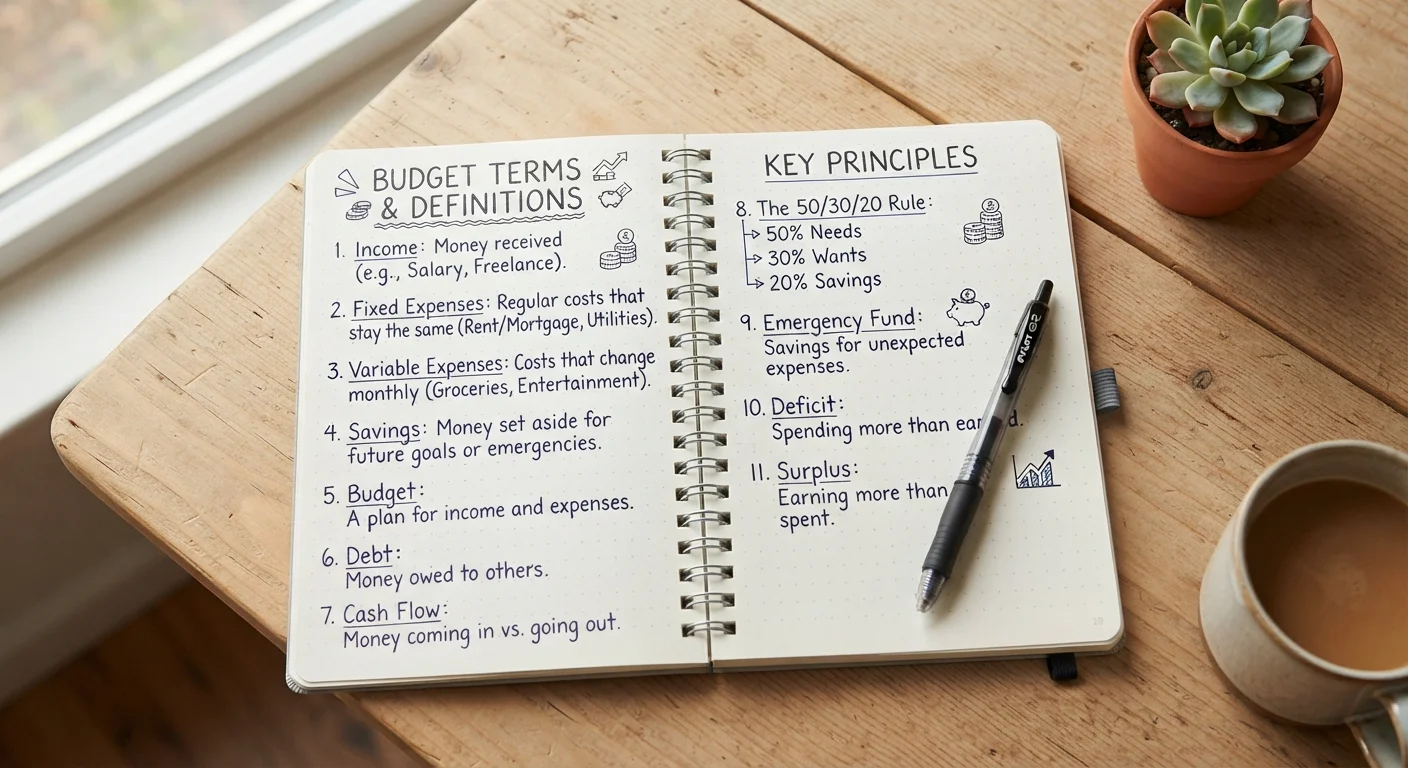 BUDGET TERMS
& DEFINITIONS
1. Income: Money received
(e.g., Salary, Freelance).
2. Fixed Expenses: Regular costs that
stay the same (Rent/Mortgage, Utilities).
3. Variable Expenses: Costs that change
monthly (Groceries, Entertainment).
4. Savings: Money set aside for
future goals or emergencies.
5. Budget:
A plan for income and expenses.
6. Debt:
Money owed to others.
7. Cash Flow:
Money coming in vs. going out.
KEY PRINCIPLES
8. The 50/30/20 Rule:
50% Needs
30% Wants
20% Savings
9. Emergency Fund:
Savings for unexpected
expenses.
10. Deficit:
Spending more than
11. Surplus:
Earning more than
spent.